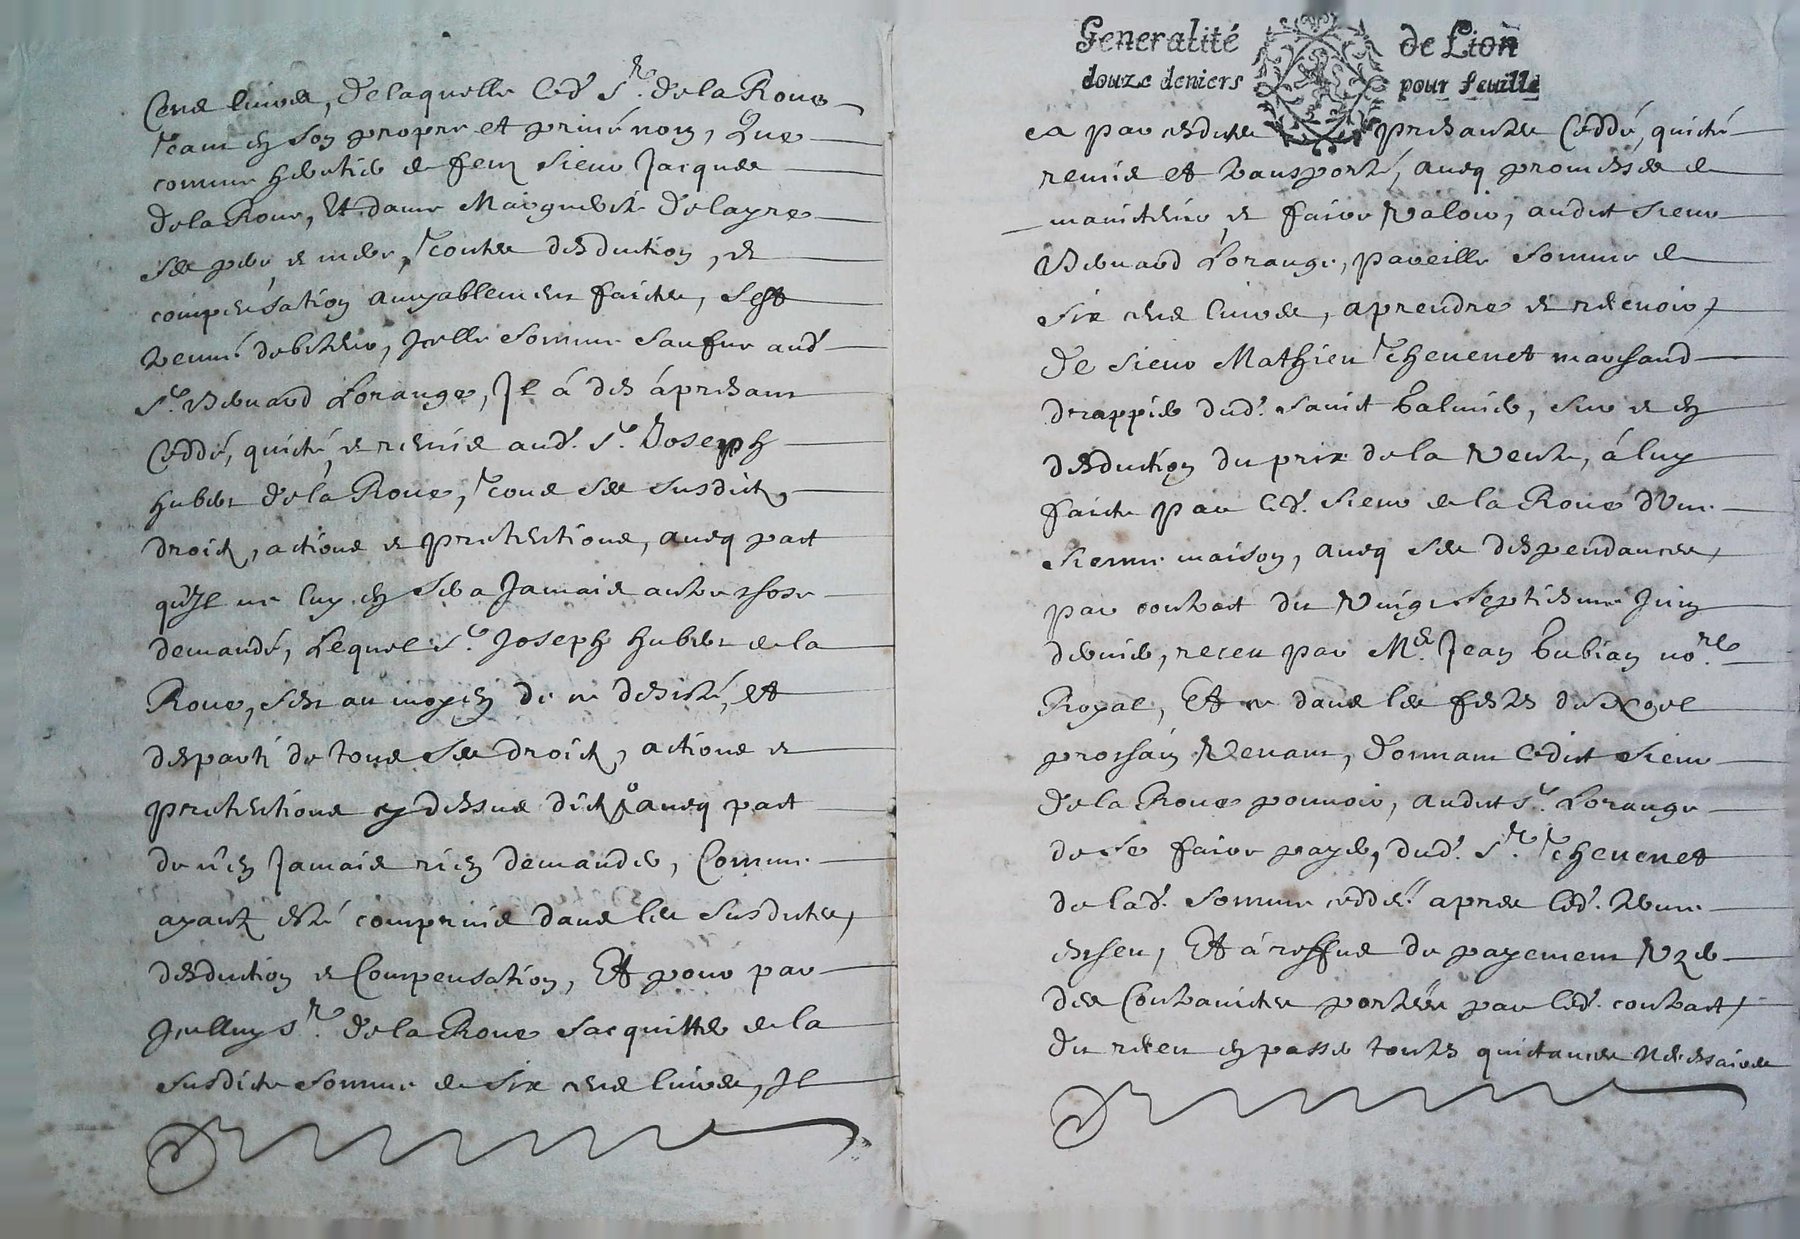 Cens livres, de laquelle led. Sr. de la Roue
Tant en son propre et privé nom, Que
comme heritier de feu sieur Jacques
de la Roue, Et dame Marguerite Delayre
ses pere et mere, Toutes desduction, et
compensation amyablement faictes, s'est
trouvé debiteur, Jcelle somme sauf aud.
Sr. Bernard Lorange, Jl à dès à present
Ceddé, quicté, et remis aud. Sr. Joseph
hubert de la Roue, Tous ses susdicts
droicts, actions et pretentions, aveq pact
qu'Jl ne luy en sera Jamais autre chose
demandé, Lequel Sr. Joseph hubert de la
Roue, s'est au moyen de ce desisté, et
desparti de tous ses droicts, actions et
pretentions cy dessus dicts, aveq pact
de n'en Jamais rien demander, Comme
ayant esté comprins dans les susdictes,
desduction et Compensation, Et pour par
Jcelluy Sr. de la Roue s'acquitter de la
susdicte somme de six cens livres, Jl
Generalité de Lion
douze deniers pour feuille
ca par cesdictes presantes Ceddé, quicté
remis et transporté, aveq promesse de
maintenir et faire Valoir, audict sieur
Bernard Lorange, pareille somme de
six cens livres, a prendre et recevoir,
de sieur Mathieu Thevenet marchand
drappier dud. sainct Galmier, sur et en
desduction du prix de la Vente, à luy
faicte par led. sieur de la Roue d'Une
sienne maison, aveq ses despendances,
par contract du Vingt septiesme Juin
dernier, receu par Me. Jean Bubian nore.
Royal, Et ce dans les festes de Noel
prochain Venant, donnant ledict sieur
de la Roue pouvoir, audict Sr. Lorange
de se faire payer, dud. Sr. Thevenet
de lad. somme ceddée apres led. terme
escheu, Et à reffus de payement Vzer
des Contrainctes portées par led. contract,
du receu en passer toutes quictances necessaires